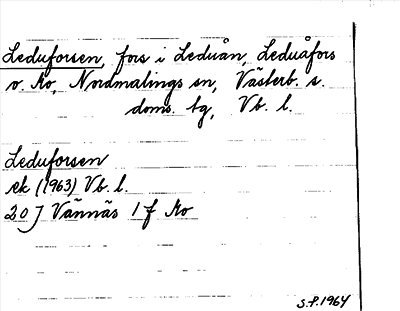 Leduforsen, fors i Leduån, Leduåfors
v. Ro, Nordmalings sn, Västerb. s.
doms. tg, Vb. l.
Leduforsen
ek (1963) Vb. l.
20 J Vännäs 1 f Ro
S.P. 1964